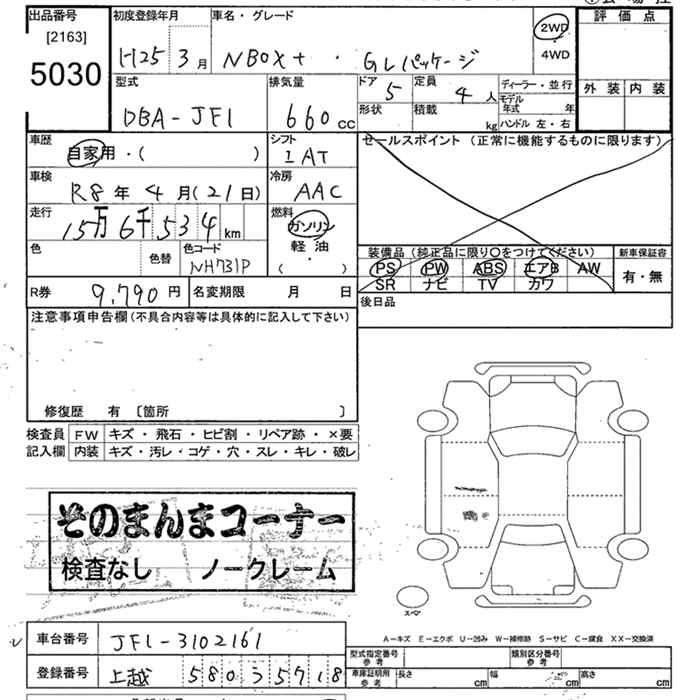 出品番号 初度登録年月 車名・グレード 2WD 評価点
[2163] H25年 3月 NBOX+ ・ GLパッケージ 4WD
5030 型式 排気量 ドア 定員 ディーラー・並行 外装 内装
5 4人 モデル年式 年
DBA-JF1 660cc 形状 積載 kg ハンドル 左・右
車歴 自家用・( ) シフト IAT セールスポイント (正常に機能するものに限ります)
車検 R8年4月(21日) 冷房 AAC
走行 15万6千534km 燃料 ガソリン
軽油
色 色替 色コード NH731P ・ ( )
装備品 (純正品に限り〇をつけてください) 新車保証書
PS PW ABS エアB AW 有・無
SR ナビ TV カワ
R券 9,790円 名変期限 月 日 後日品
注意事項申告欄(不具合内容等は具体的に記入して下さい)
修復歴 有 〔箇所 〕
検査員 FW キズ・飛石・ヒビ割・リペア跡・×要
記入欄 内装 キズ・汚レ・コゲ・穴・スレ・キレ・破レ
そのまんまコーナー
検査なし ノークレーム
スペア
A-キズ E-エクボ U-凹み W-補修跡 S-サビ C-腐食 XX-交換済
車台番号 JF1-3102161
型式指定番号 参考 類別区分番号 参考
登録番号 上越 580 3 5718
車庫証明用 参考 長さ cm 幅 cm 高さ cm